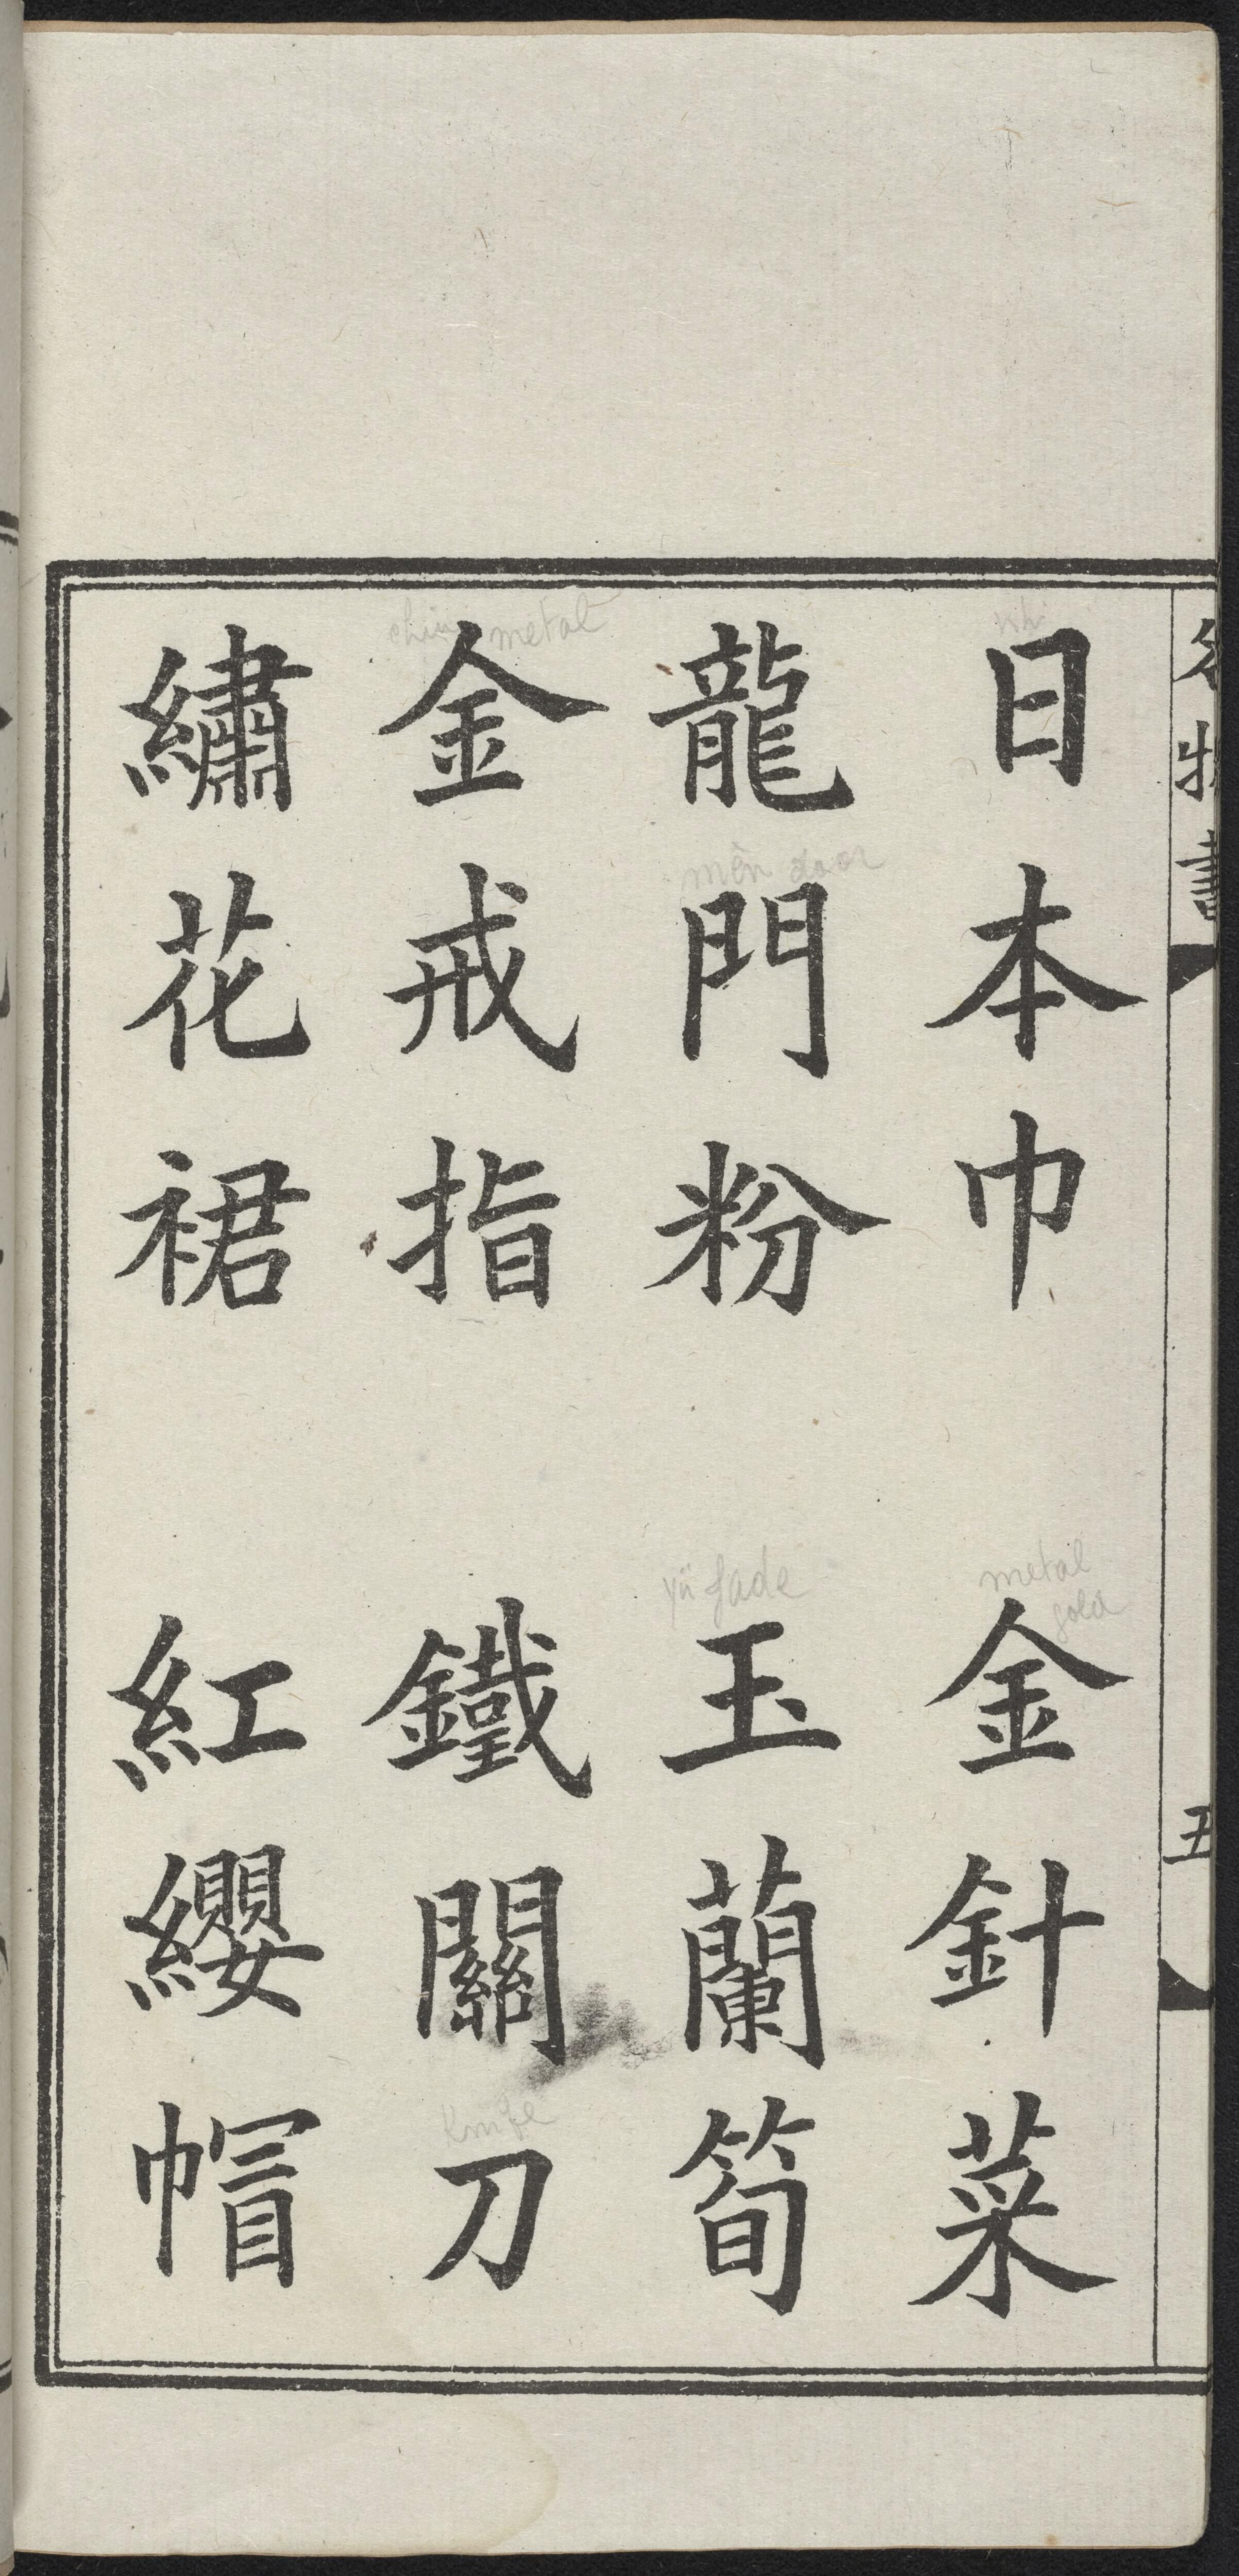 日本巾 金針菜
龍門粉 玉蘭筍
金戒指 鐵關刀
繡花裙 紅纓帽
五
metal
mên door
yü jade
metal
gold
knife